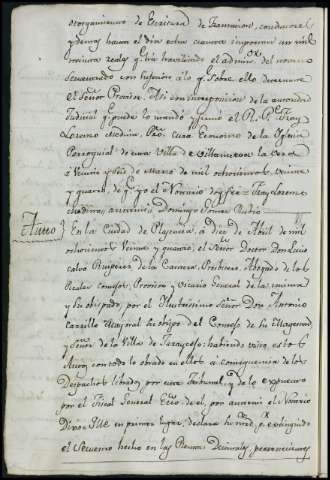 otorgamiento de Escritura de Fianza, conducente
y demas hasta el dia
reales que ha
secuestrado con sugecion a lo q.e sobre ello determine
el Señor Provisor. Asi con interposicion de la autoridad
Judicial q.e puede lo mando y firmó el R. P. Fray
Lorenzo Medina, Cura Economo de la Yglesia
Parroquial de esta Villa de Villanueva la Vera
a Veinte y seis de Marzo de mil ochocientos Veinte
y quatro, de q.e yo el Notario doy fee = Fray Lorenzo
Medina, ante mi Domingo Gomez Rubio
Auto} En la Ciudad de Plasencia a diez de Abril de mil
ochocientos Veinte y quatro, el Señor Doctor Don Luis
Calvo de la Presbitero, Abogado de los
Reales Consejos, Provisor y Vicario General de la misma
y su obispado, por el Ilustrisimo Señor Don Antonio
Carrillo Mayoral su obispo del Consejo de Su Magestad
y Señor de la Villa de Jaraycejo: habiendo visto estos
Autos, con todo lo obrado en ellos a consequencia de los
Despachos librados por este Tribunal y de lo expuesto
por el Fiscal General Ecco de el, por antemi el Notario
Dixo: Que en primer lugar, declara su mrd. extinguido
el Secuestro hecho en las Rentas Decimales, pertenecientes